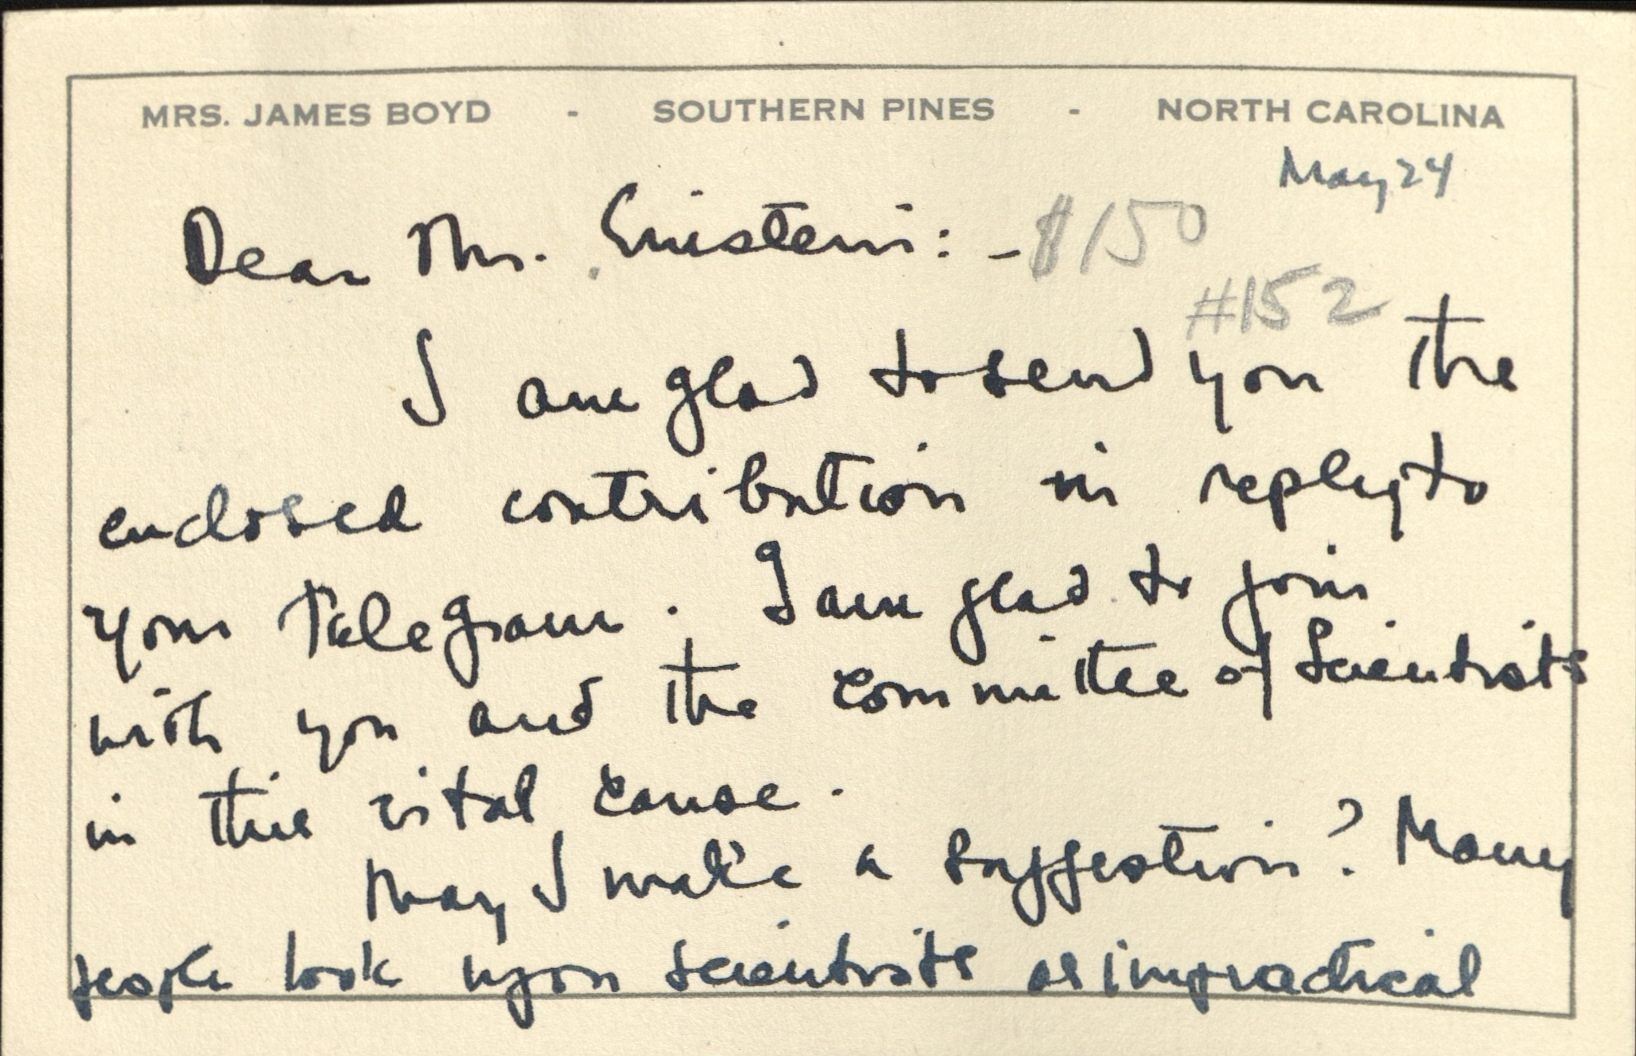 MRS. JAMES BOYD - SOUTHERN PINES - NORTH CAROLINA
May 24
Dear Mr. Einstein: - $150
#152
I am glad to send you the
enclosed contribution in reply to
your Telegram. I am glad to join
with you and the Committee of Scientists
in this vital cause.
May I make a suggestion? Many
people look upon scientists as impractical